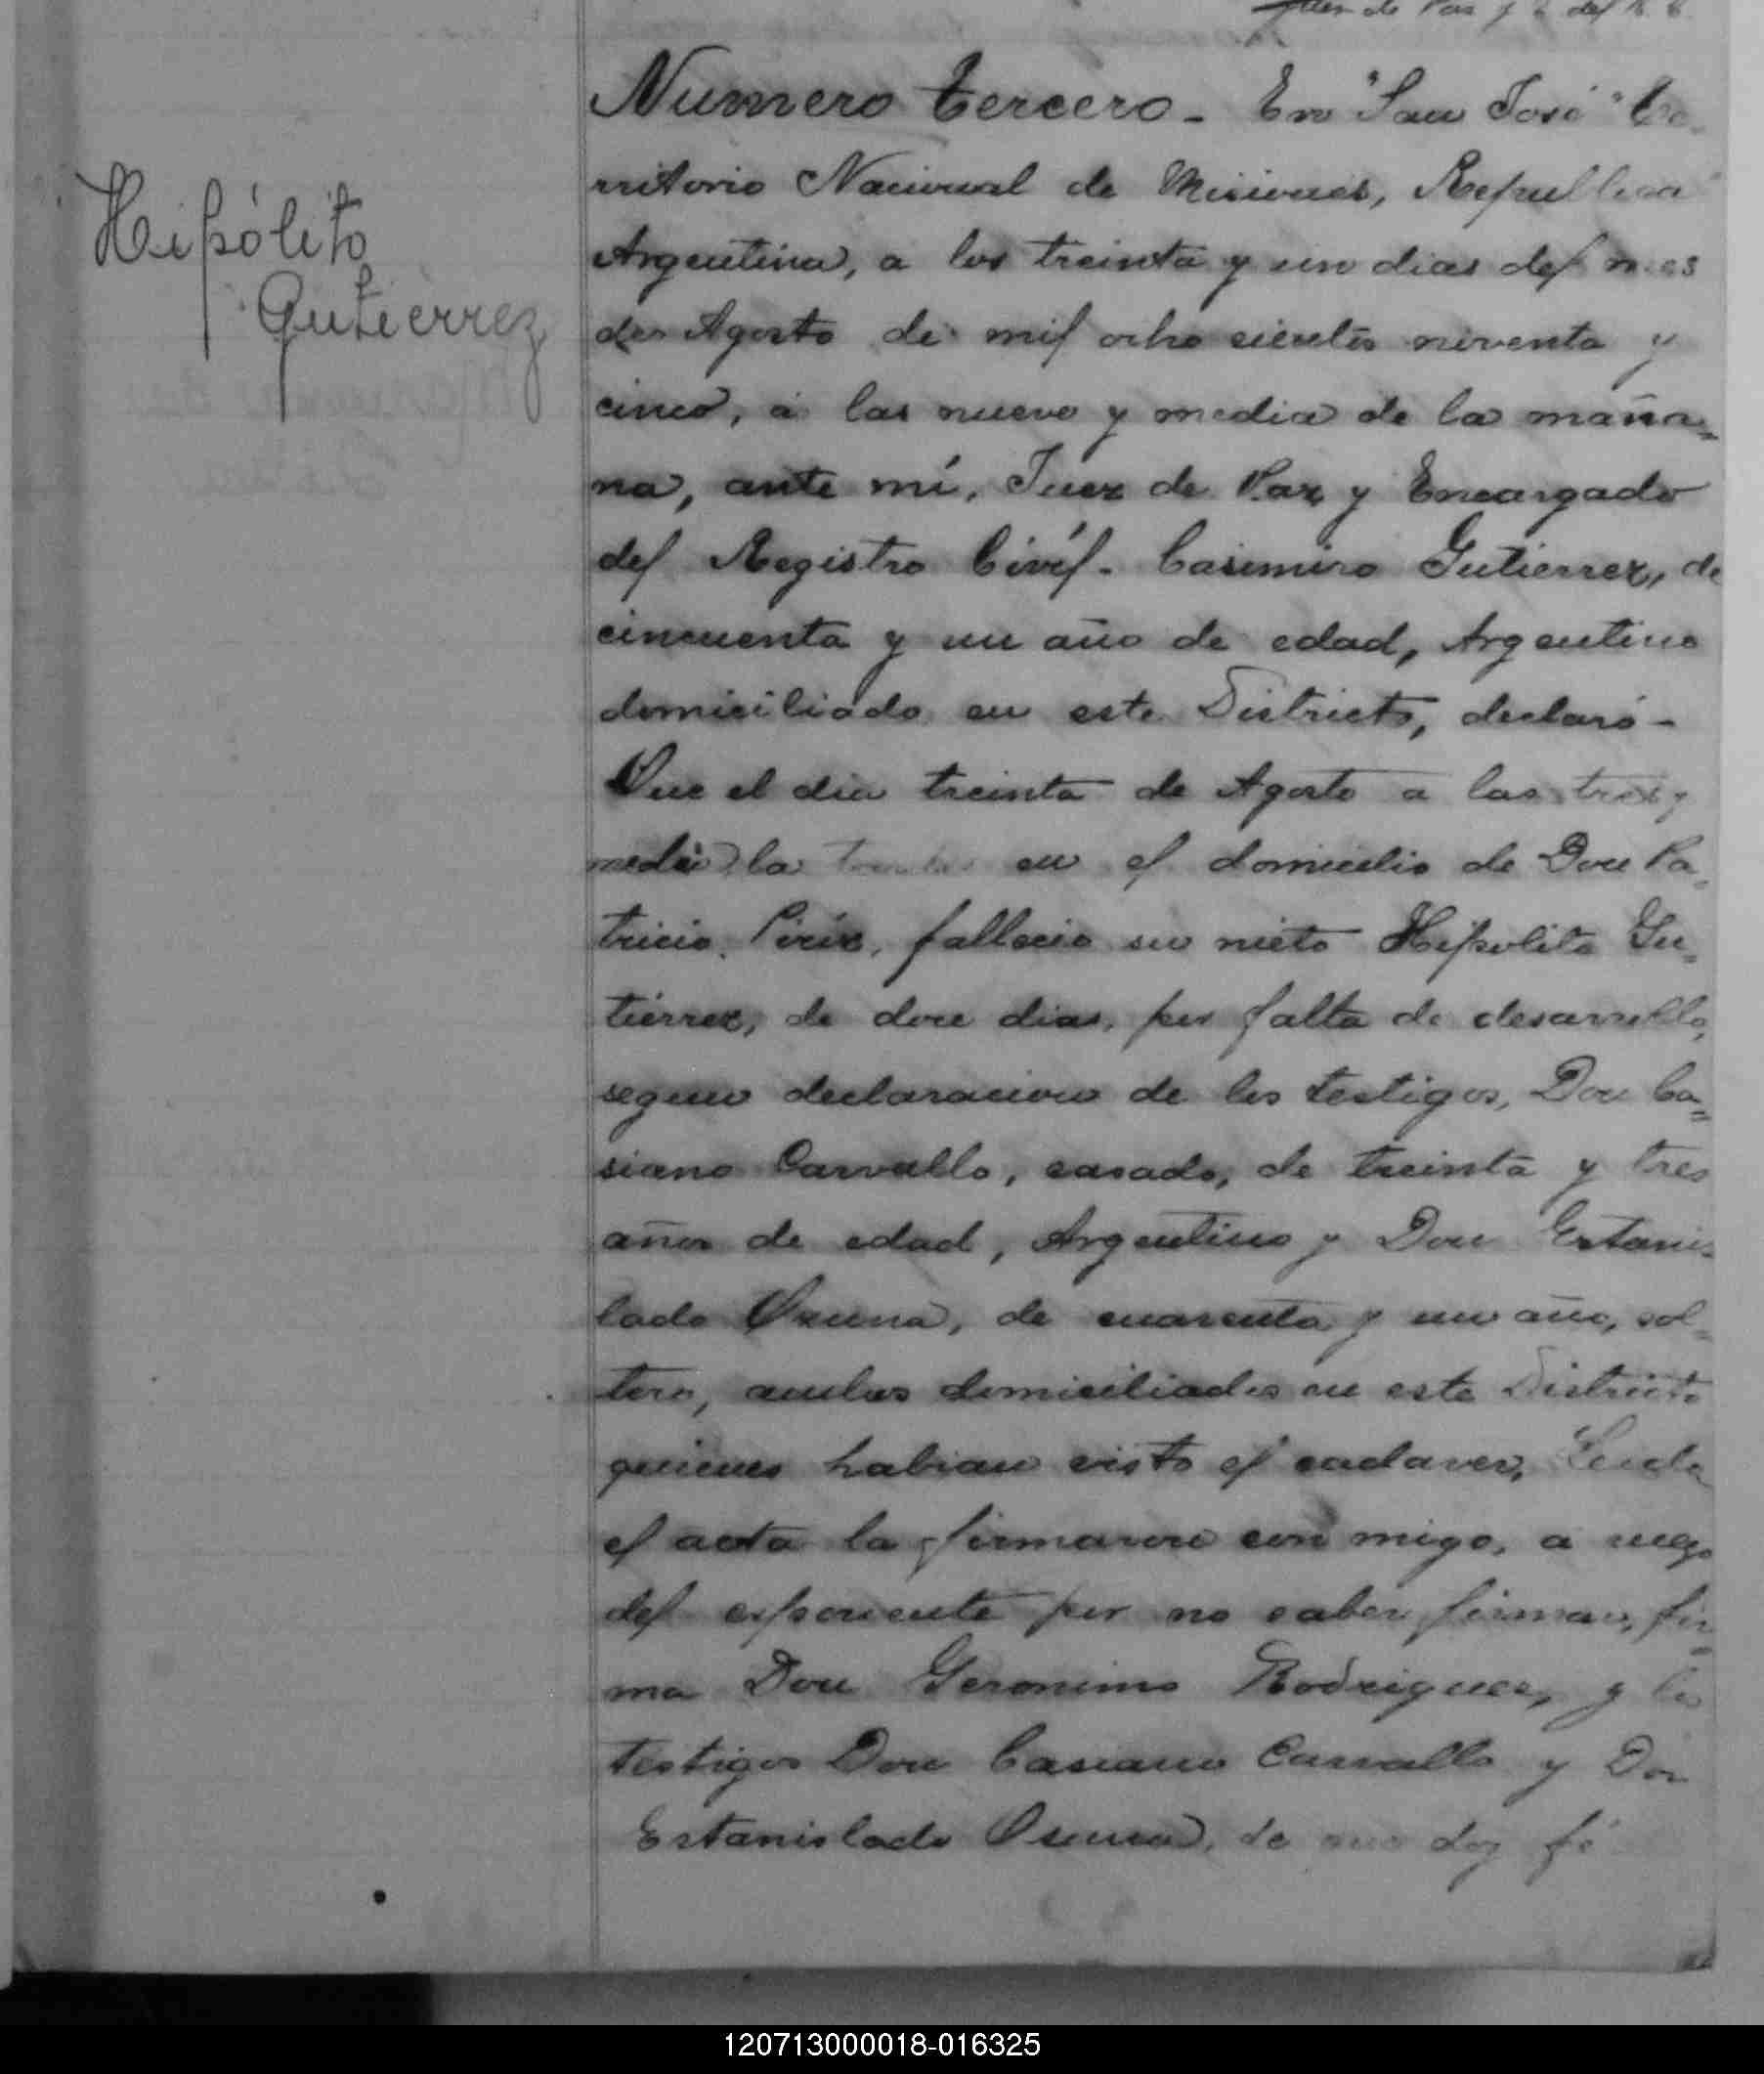 Juez de Paz y E. del R. C.
Numero tercero - En "San José" Te-
rritorio Nacional de Misiones, Republica
Argentina, a los treinta y un dias del mes
de Agosto de mil ocho cientos noventa y
cinco, á las nueve y media de la maña=
na, ante mí, Juez de Paz y Encargado
del Registro Civil - Casimiro Gutierrez, de
cincuenta y un año de edad, Argentino
domiciliado en este Districto, declaró -
Que el dia treinta de Agosto a las tres y
media la tarde en el domicilio de Don Pa-
tricio Piris, fallecio su nieto Hipolito Gu=
tiérrez, de doce dias, por falta de desarrollo,
segun declaracion de los testigos, Don Ca=
siano Carvallo, casado, de treinta y tres
años de edad, Argentino y Don Estanis-
lado Osuna, de cuarenta y un año, sol=
tero, ambos domiciliados en este Districto
quienes habian visto el cadaver. Leida
el acta la firmaron con migo, a ruego
del esponente por no saber firmar, fir=
ma Don Geronimo Rodriguez, y los
testigos Don Casiano Carvallo y Don
Estanislado Osuna, de que doy fé
Hipólito
Gutierrez
120713000018-016325